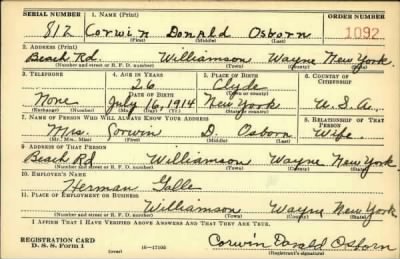 SERIAL NUMBER 1. NAME (Print) ORDER NUMBER
812 Corwin Donald Osborn 1092
(First) (Middle) (Last)
2. ADDRESS (Print)
Beach Rd. Williamson Wayne New York
(Number and street or R. F. D. number) (Town) (County) (State)
3. TELEPHONE 4. AGE IN YEARS 5. PLACE OF BIRTH 6. COUNTRY OF CITIZENSHIP
26 Clyde
None DATE OF BIRTH (Town or county)
July 16, 1914 New York U.S.A.
(Exchange) (Number) (Mo.) (Day) (Yr.) (State or country)
7. NAME OF PERSON WHO WILL ALWAYS KNOW YOUR ADDRESS 8. RELATIONSHIP OF THAT PERSON
Mrs. Corwin D. Osborn Wife
(Mr., Mrs., Miss) (First) (Middle) (Last)
9. ADDRESS OF THAT PERSON
Beach Rd Williamson Wayne New York
(Number and street or R. F. D. number) (Town) (County) (State)
10. EMPLOYER'S NAME
Herman Galle
11. PLACE OF EMPLOYMENT OR BUSINESS
Williamson Wayne New York
(Number and street or R. F. D. number) (Town) (County) (State)
I AFFIRM THAT I HAVE VERIFIED ABOVE ANSWERS AND THAT THEY ARE TRUE.
REGISTRATION CARD
D. S. S. Form 1 (over) 16—17105 Corwin Donald Osborn
(Registrant's signature)